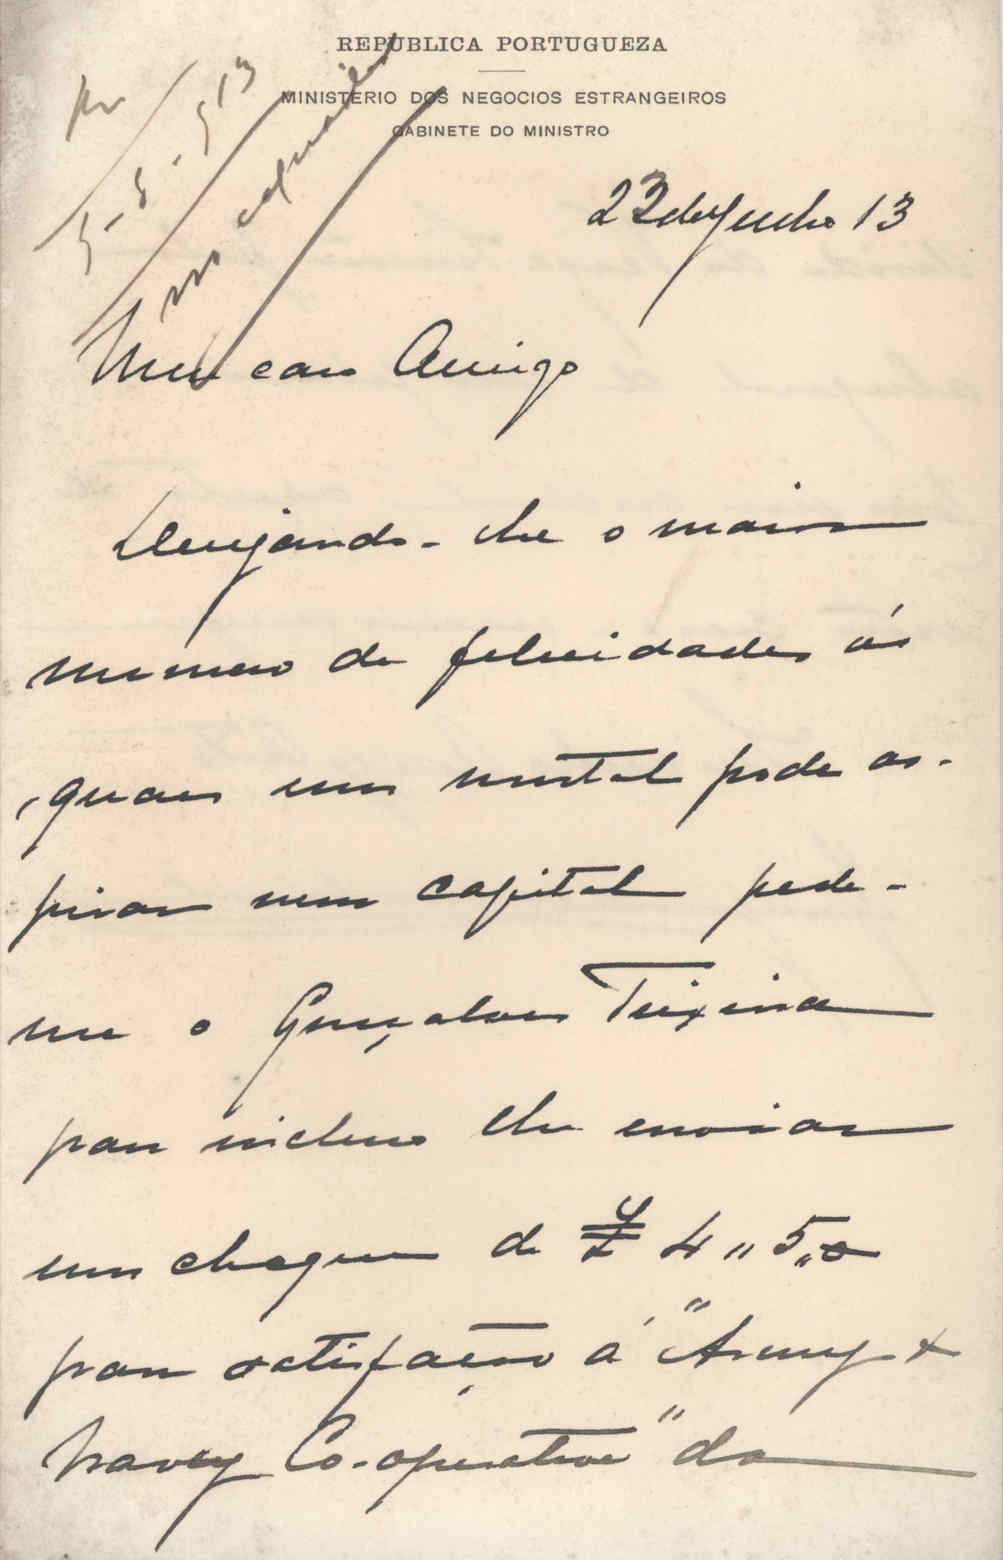 REPUBLICA PORTUGUEZA
MINISTERIO DOS NEGOCIOS ESTRANGEIROS
GABINETE DO MINISTRO
5-8-913
23 de Junho 13
Meu caro Amigo
Desejando-lhe o maior
numero de felicidades ás
quaes um mortal pode as-
pirar num capital pede-
me o Gonçalves Teixeira
para incluso lhe enviar
um cheque de £ 4,,5,,0
para satisfação á "Army &
Navy Co-operative" da